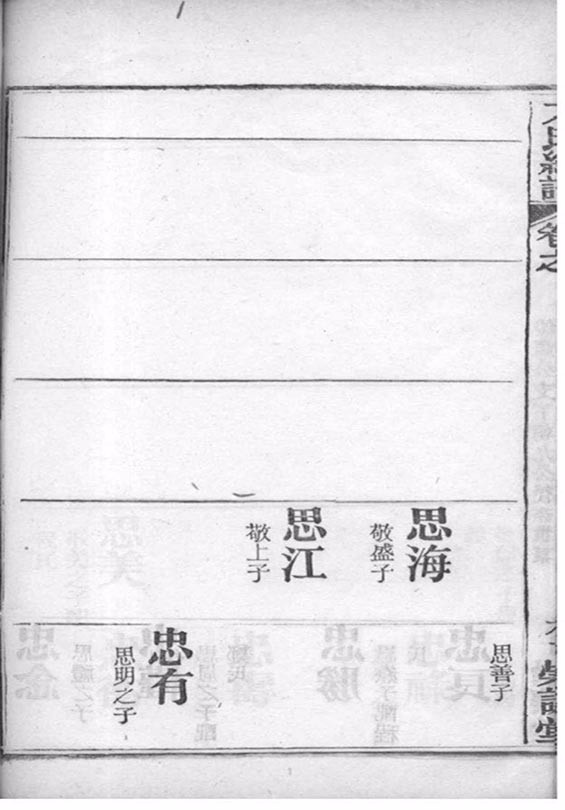 卷之
思海
敬盛子
思江
敬上子
思善子
忠有
思明之子